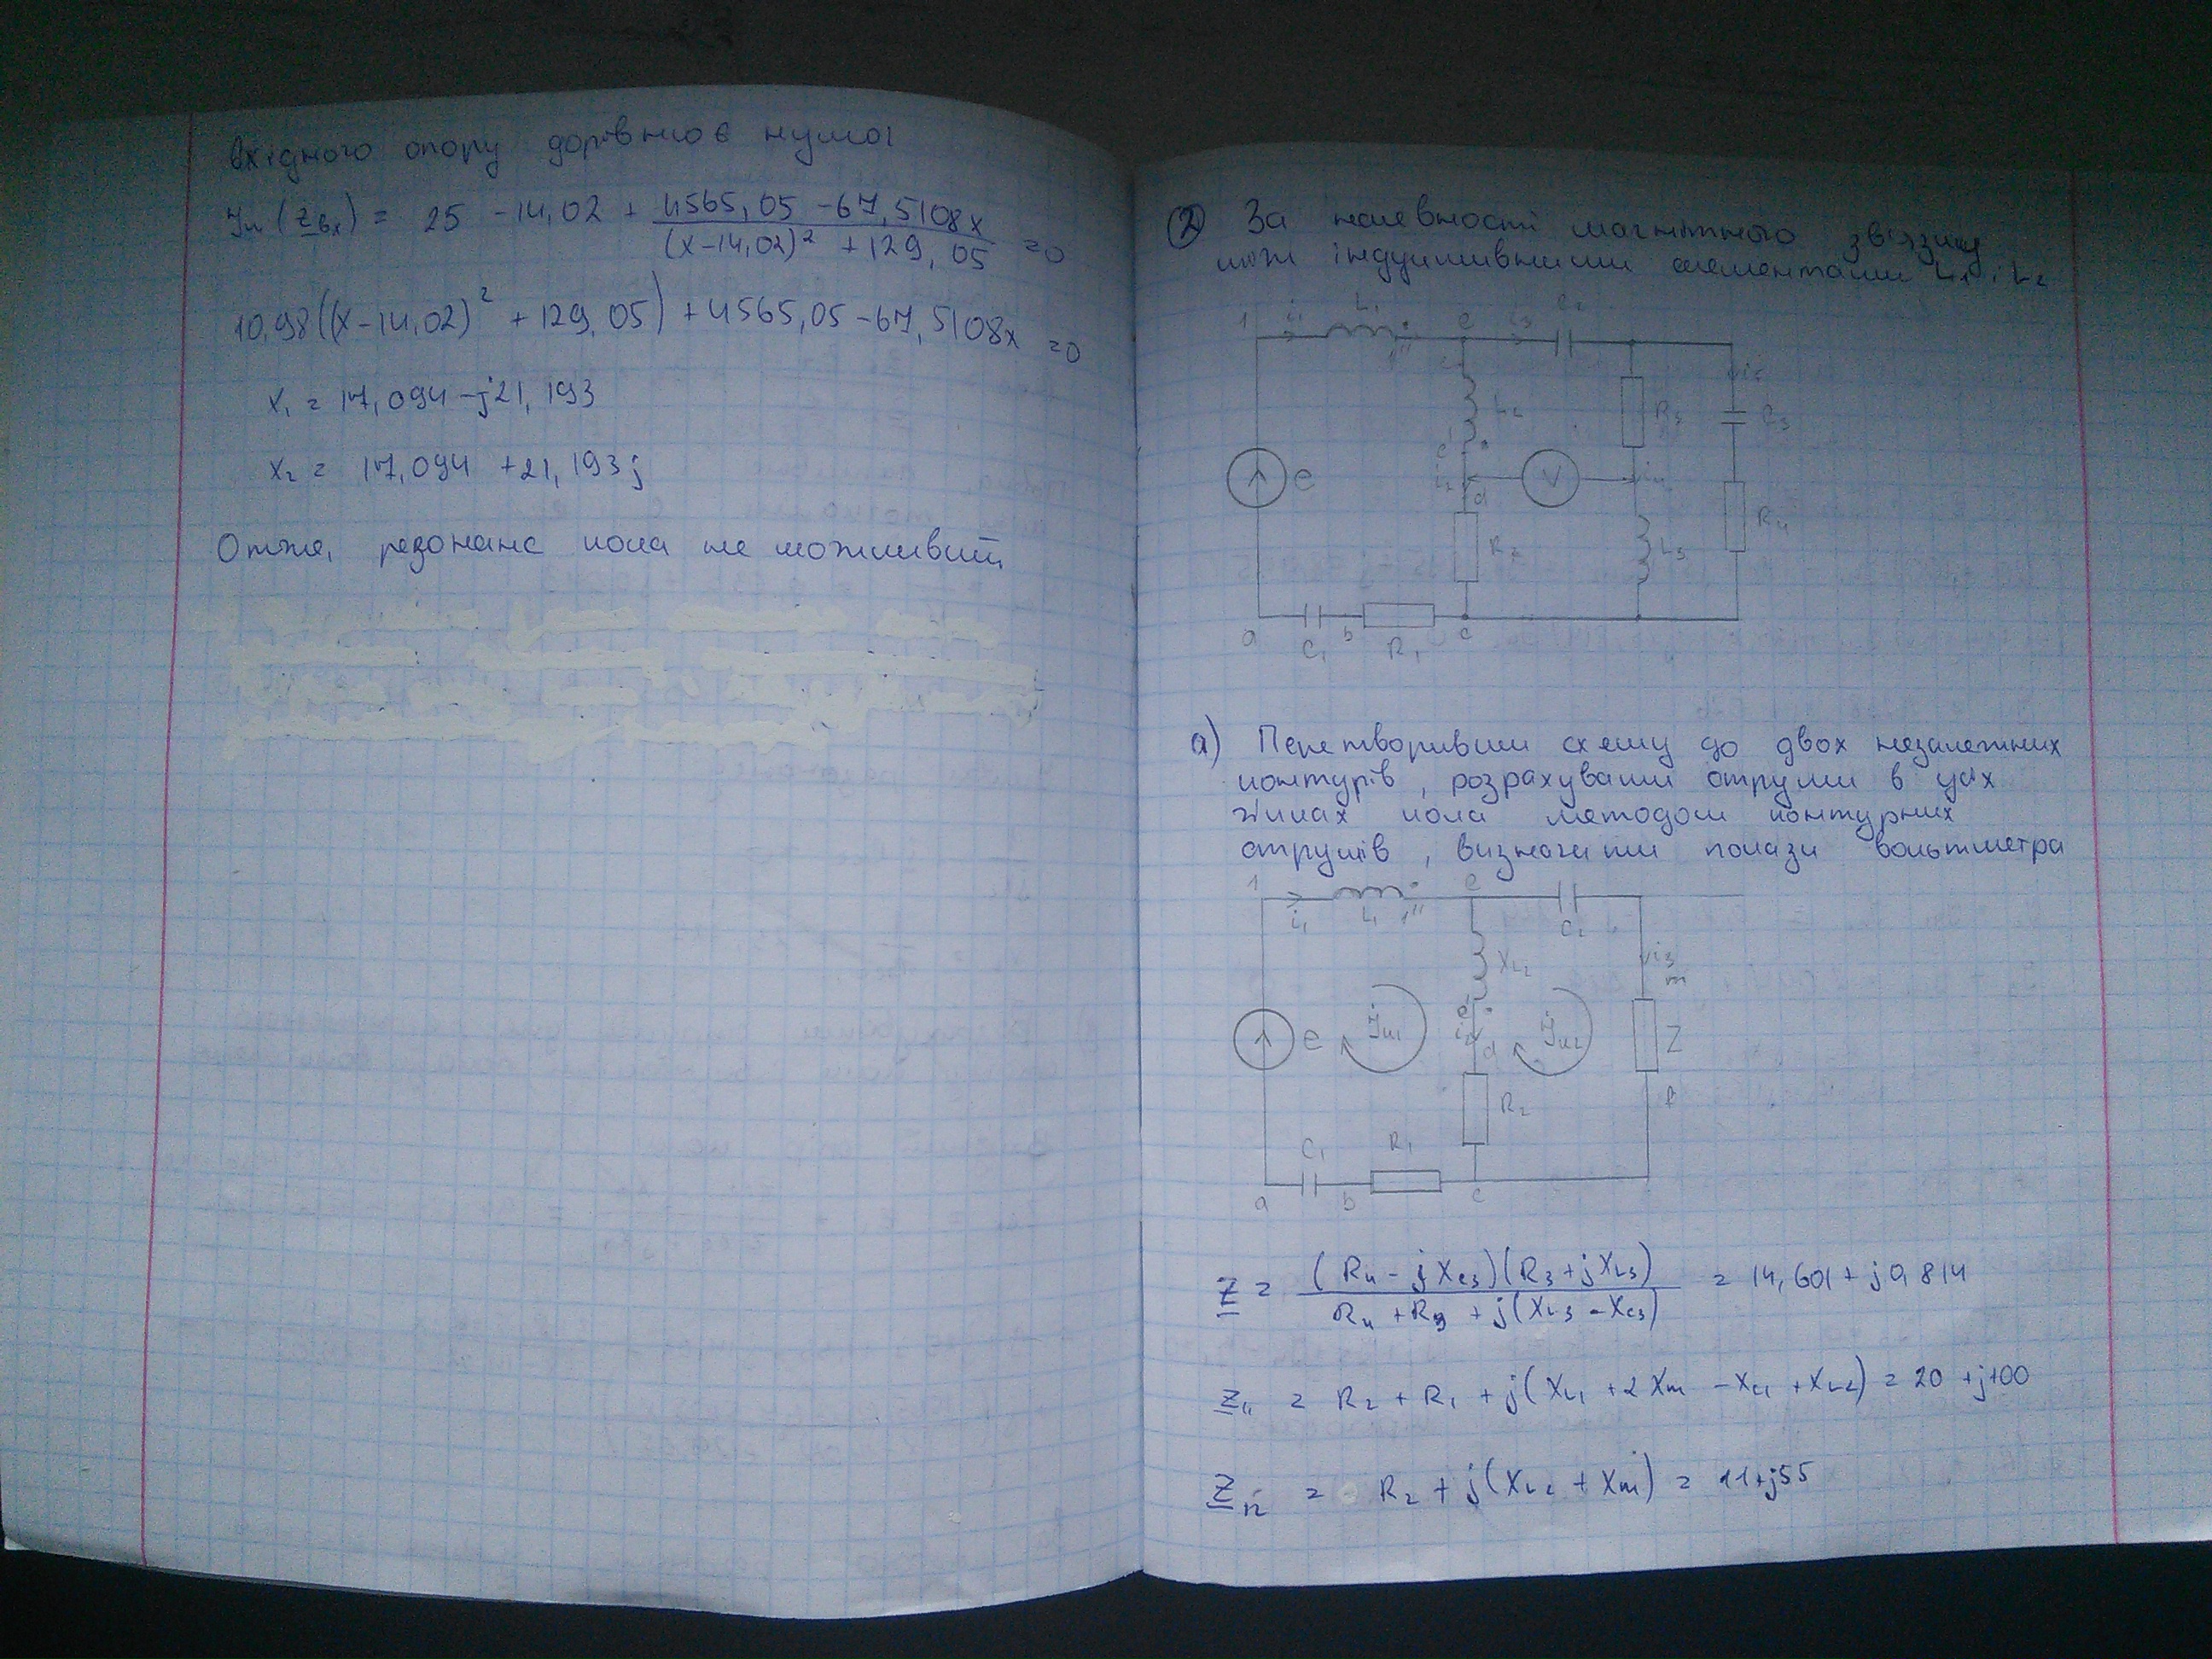 вхідного опору дорівнює нулю
Im(Zвх) = 25 - 14,02 + (4565,05 - 67,5108x)/((x-14,02)² + 129,05) = 0
10,98((x-14,02)² + 129,05) + 4565,05 - 67,5108x = 0
x₁ = 17,094 - j21,193
x₂ = 17,094 + 21,193j
Отже, резонанс кола не можливий
② За наявності магнітного зв'язку
між індуктивними елементами L₁ і L₂
1 i₁ L₁ 1'' e i₃ C₂
L₂ R₃ C₃
e i₂ V i₄
d R₂ L₃ R₄
a C₁ b R₁ c
а) Перетворивши схему до двох незалежних
контурів, розрахувати струми в усіх
гілках кола методом контурних
струмів, визначити покази вольтметра
1 i₁ L₁ 1'' e C₂
XL₂ i₃ m
e Iк1 i₂ d Iк2 Z
R₂
C₁ R₁
a b c
Z = (R₄ - jXC3)(R₃ + jXL3)/(R₄ + R₃ + j(XL3 - XC3)) = 14,601 + j0,814
Z₁₁ = R₂ + R₁ + j(XL1 + 2Xm - XC1 + XL2) = 20 + j100
Z₁₂ = R₂ + j(XL2 + Xm) = 11 + j55